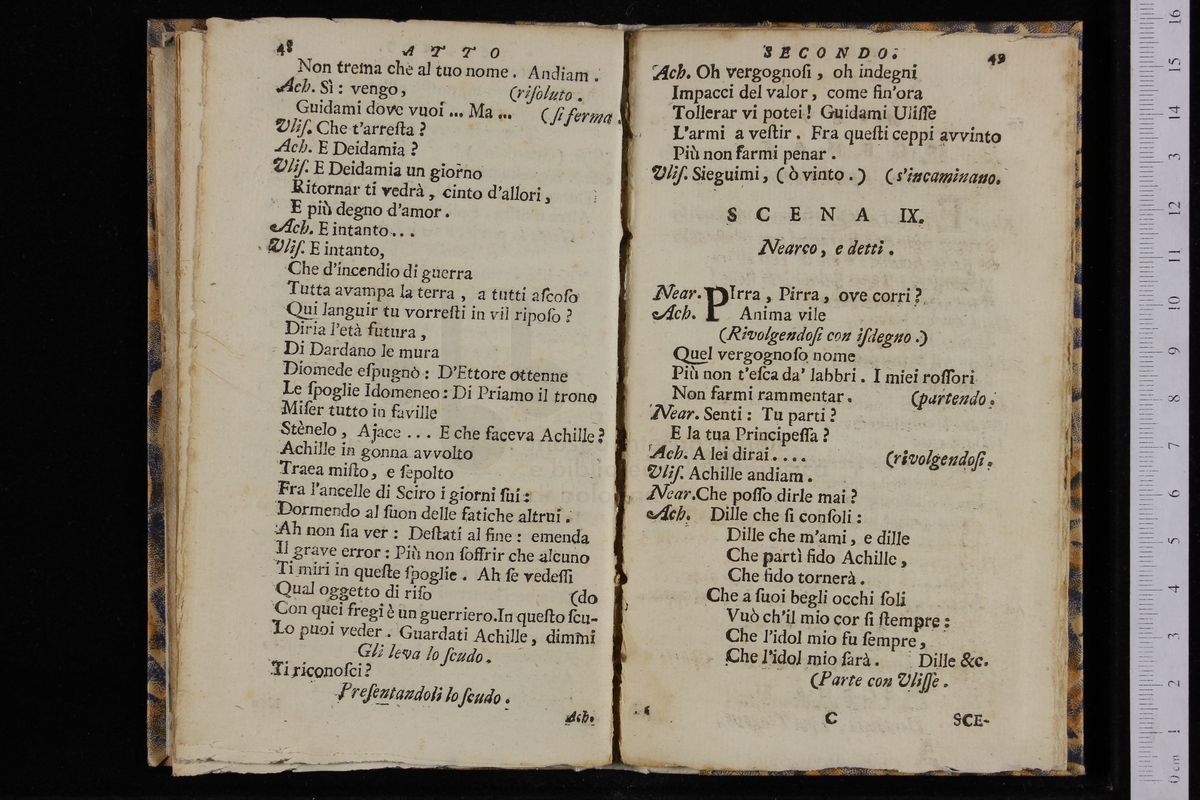 48 ATTO
Non trema chè al tuo nome. Andiam.
Ach. Sì: vengo, (riſoluto.
Guidami dove vuoi ... Ma ... (ſi ferma.
Uliſ. Che t'arreſta?
Ach. E Deidamia?
Uliſ. E Deidamia un giorno
Ritornar ti vedrà, cinto d'allori,
E più degno d'amor.
Ach. E intanto...
Uliſ. E intanto,
Che d'incendio di guerra
Tutta avampa la terra, a tutti aſcoſo
Qui languir tu vorreſti in vil ripoſo?
Diria l'età futura,
Di Dardano le mura
Diomede eſpugnò: D'Ettore ottenne
Le ſpoglie Idomeneo: Di Priamo il trono
Miſer tutto in faville
Stènelo, Ajace ... E che faceva Achille?
Achille in gonna avvolto
Traea miſto, e ſepolto
Fra l'ancelle di Sciro i giorni ſui:
Dormendo al ſuon delle fatiche altrui.
Ah non ſia ver: Deſtati al fine: emenda
Il grave error: Più non ſoffrir che alcuno
Ti miri in queſte ſpoglie. Ah ſe vedeſſi
Qual oggetto di riſo (do
Con quei fregi è un guerriero.In queſto ſcu-
Lo puoi veder. Guardati Achille, dimmi
Gli leva lo ſcudo.
Ti riconoſci?
Preſentandoli lo ſcudo.
Ach.
SECONDO. 49
Ach. Oh vergognoſi, oh indegni
Impacci del valor, come fin'ora
Tollerar vi potei! Guidami Uliſſe
L'armi a veſtir. Fra queſti ceppi avvinto
Più non farmi penar.
Uliſ. Sieguimi, (ò vinto.) (s'incaminano.
SCENA IX.
Nearco, e detti.
Near. PIrra, Pirra, ove corri?
Ach. Anima vile
(Rivolgendoſi con iſdegno.)
Quel vergognoſo nome
Più non t'eſca da' labbri. I miei roſſori
Non farmi rammentar. (partendo.
Near. Senti: Tu parti?
E la tua Principeſſa?
Ach. A lei dirai.... (rivolgendoſi.
Uliſ. Achille andiam.
Near.Che poſſo dirle mai?
Ach. Dille che ſi conſoli:
Dille che m'ami, e dille
Che partì fido Achille,
Che fido tornerà.
Che a ſuoi begli occhi ſoli
Vuò ch'il mio cor ſi ſtempre:
Che l'idol mio fu ſempre,
Che l'idol mio ſarà. Dille &c.
(Parte con Uliſſe.
C SCE-
16
15
14
13
12
11
10
9
8
7
6
5
4
3
2
1
0 cm